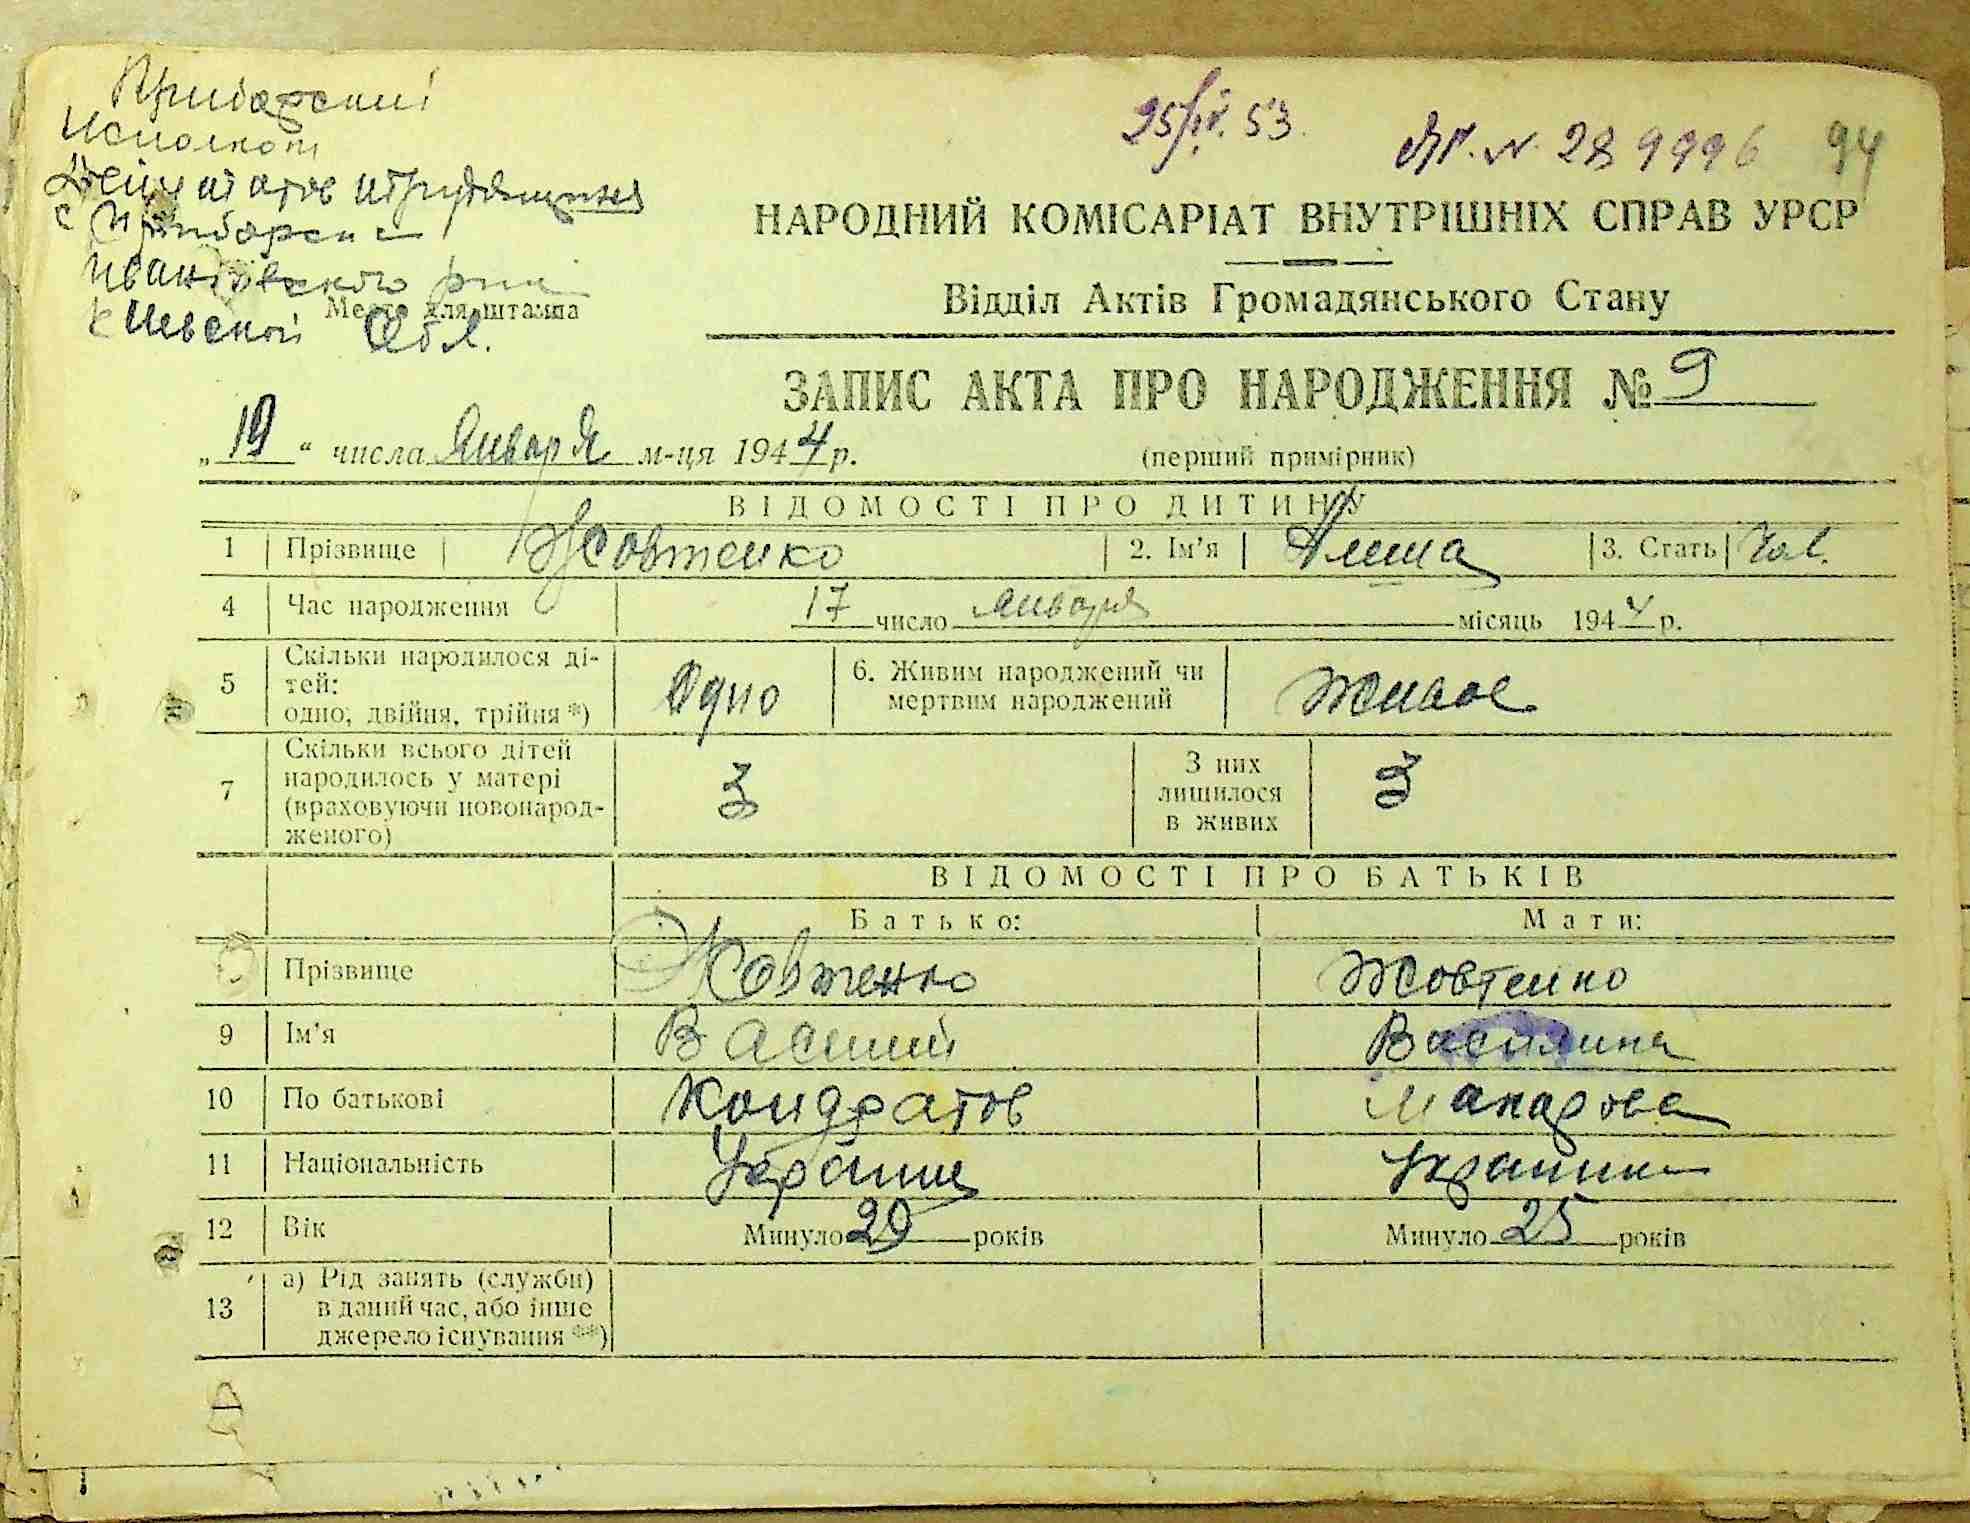 Исполком
с
Ивановского
Место для штампа
Киевской Обл.
25/IV. 53.
№ 289996
94
НАРОДНИЙ КОМІСАРІАТ ВНУТРІШНІХ СПРАВ УРСР
Відділ Актів Громадянського Стану
ЗАПИС АКТА ПРО НАРОДЖЕННЯ № 9
„19“ числа Января м-ця 1944 р.
(перший примірник)
ВІДОМОСТІ ПРО ДИТИНУ
1 Прізвище Жовтенко 2. Ім'я 3. Стать Чол.
4 Час народження 17 число января місяць 1944 р.
5 Скільки народилося ді-
тей:
одно, двійня, трійня *) Одно 6. Живим народжений чи
мертвим народжений Живое
7 Скільки всього дітей
народилось у матері
(враховуючи новонарод-
женого) 3 З них
лишилося
в живих 3
ВІДОМОСТІ ПРО БАТЬКІВ
Батько: Мати:
Прізвище Жовтенко Жовтенко
9 Ім'я Василий Василина
10 По батькові Кондратов Макарова
11 Національність
12 Вік Минуло 29 років Минуло 25 років
13 а) Рід занять (служби)
в даний час, або інше
джерело існування **)